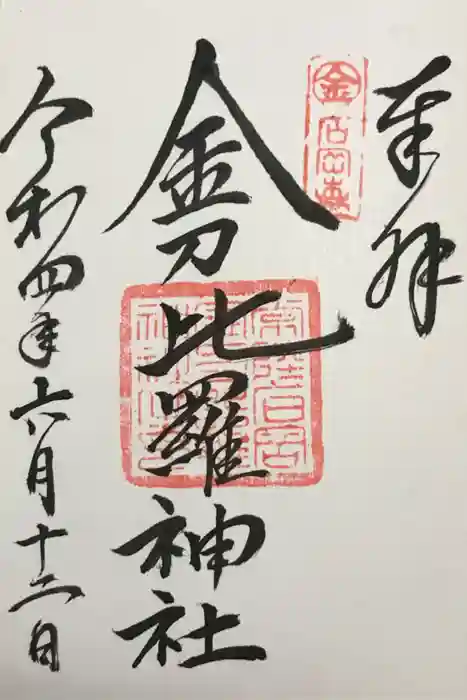 奉拝
金刀比羅神社
令和四年六月十二日